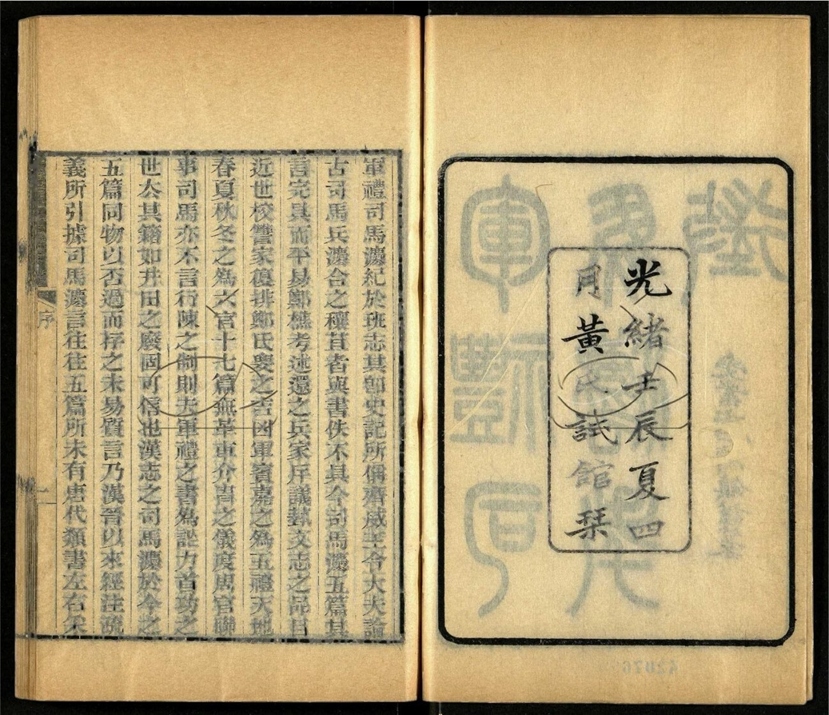 光緒壬辰夏四
月黃氏試館栞
軍禮司馬灋紀於班志其卽史記所偁齊威王令大夫論
古司馬兵灋合之穰苴者與書佚不具今司馬灋五篇其
言完具而平易鄭樵考述還之兵家斥議蓺文志之品目
近世校讐家復排鄭氏要之吉凶軍賓嘉之爲五禮天地
春夏秋冬之爲六官十七篇無革車介冑之儀度周官聯
事司馬亦不言行陳之制則夫軍禮之書爲詮力首功之
世厺其籍如井田之廢固可信也漢志之司馬灋於今之
五篇同物以否過而存之未易質言乃漢晉以來經注疏
義所引據司馬灋言往往五篇所未有唐代類書左右采
序